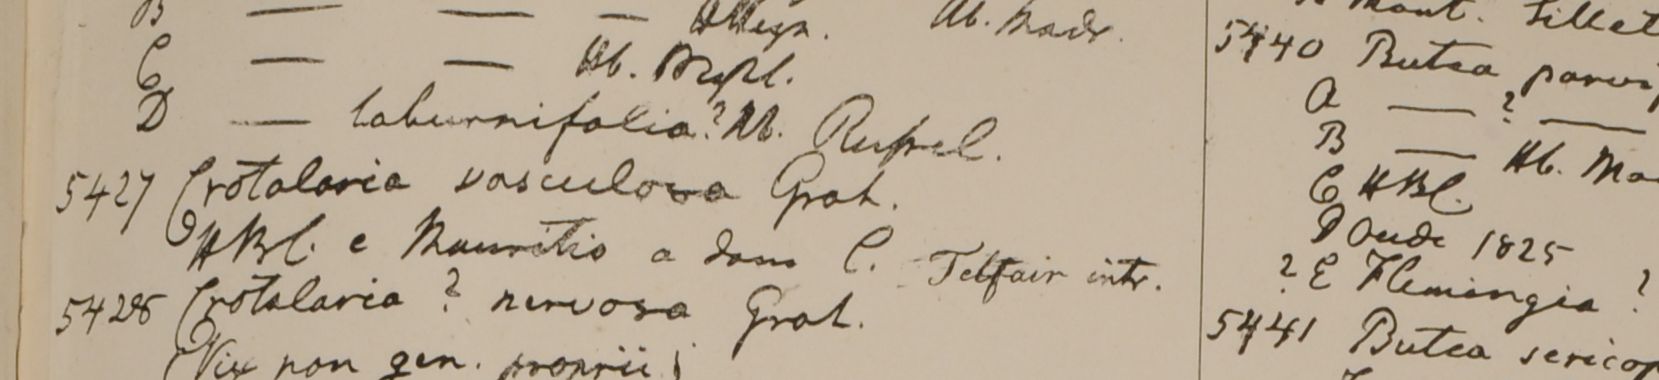 B — — — HHeyn. Hb. Madr.
C — — Hb. Russel.
D — laburnifolia? Hb. Russel.
5427 Crotalaria vasculosa Grah.
HBC. e Mauritio a dom C. Telfair intr.
5428 Crotalaria ? nervosa Grah.
(Vix non gen. proprii)
Mont. Sillet
5440 Butea parvi
A — ? —
B — Hb. Ma
C HBC.
D Oude 1825
? E Flemingia ?
5441 Butea serico